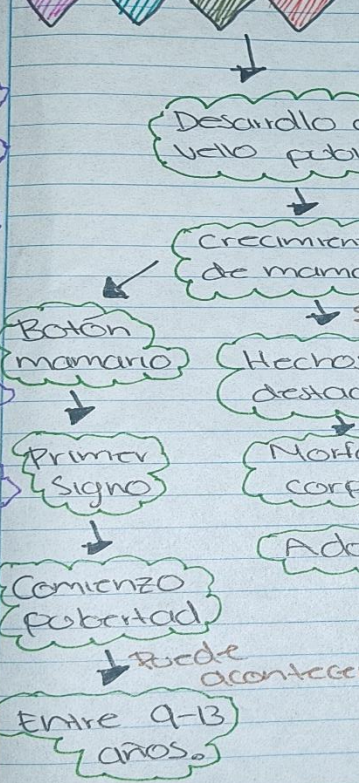 Desarrollo
vello
Crecimien
de mama
Botón
mamario
Hecho
destac
Primer
signo
Morfo
corp
Ado
Comienzo
pubertad
Puede
acontece
Entre 9-13
años.